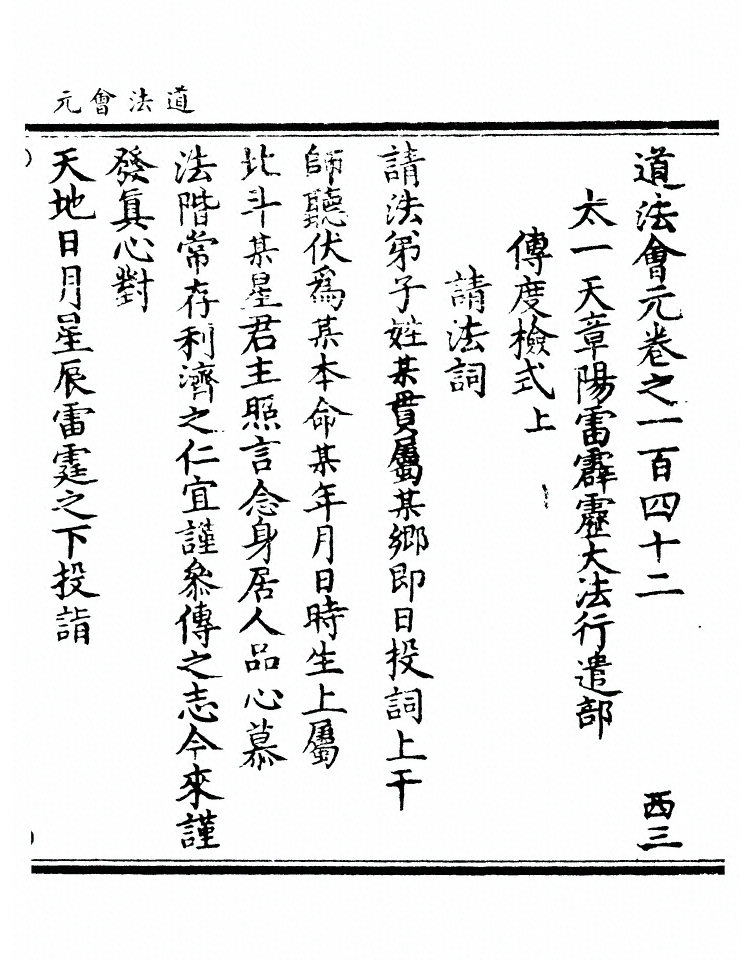 道法會元
道法會元卷之一百四十二 西三
太一天章陽雷霹靂大法行遣部
傳度檢式上
請法詞
請法弟子姓某貫屬某鄉即日投詞上干
師聽伏爲某本命某年月日時生上屬
北斗某星君主照言念身居人品心慕
法階常存利濟之仁宜謹叅傳之志今來謹
發眞心對
天地日月星辰雷霆之下投詣